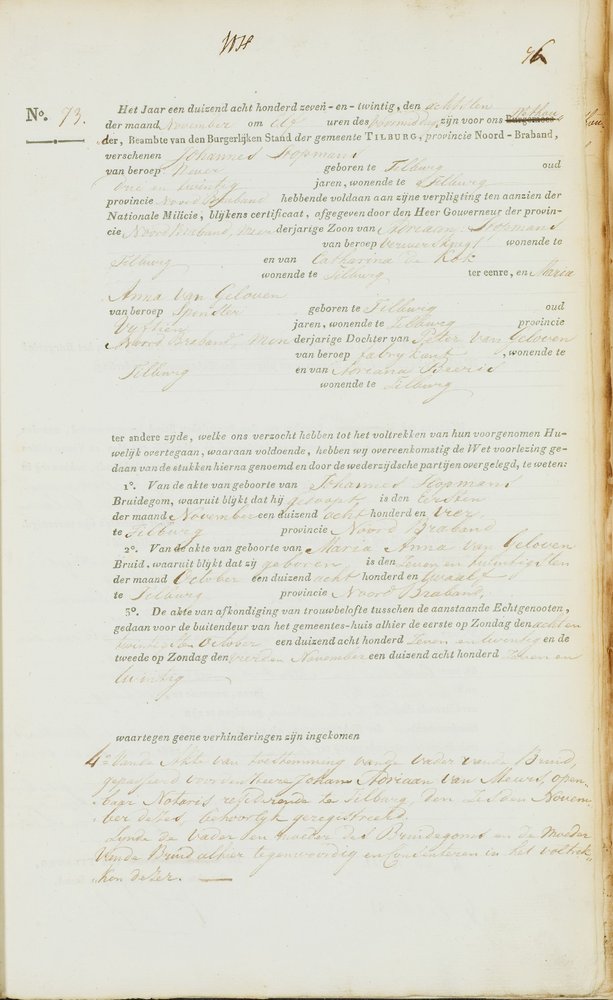 96
No. 73.
Het Jaar een duizend acht honderd zeven-en-twintig, den achtsten
der maand November om elf uren des voormiddag, zijn voor ons
der, Beambte van den Burgerlijken Stand der gemeente TILBURG, provincie Noord-Braband,
verschenen Johannes Hopmans
van beroep Wever geboren te Tilburg oud
een en twintig jaren, wonende te Tilburg
provincie Noord Braband hebbende voldaan aan zijne verpligting ten aanzien der
Nationale Milicie, blijkens certificaat, afgegeven door den Heer Gouverneur der provin-
cie Noord Braband, meerderjarige Zoon van Adriaan Hopmans
van beroep verwersknegt wonende te
Tilburg en van Catharina de Kok
wonende te Tilburg ter eenre, en Maria
Anna van Geloven
van beroep Spinster geboren te Tilburg oud
Vyftien jaren, wonende te Tilburg provincie
Noord Braband, minderjarige Dochter van Peter van Geloven
van beroep fabrykant, wonende te
Tilburg en van Adriana Beeris
wonende te Tilburg
ter andere zijde, welke ons verzocht hebben tot het voltrekken van hun voorgenomen Hu-
welijk overtegaan, waaraan voldoende, hebben wij overeenkomstig de Wet voorlezing ge-
daan van de stukken hierna genoemd en door de wederzijdsche partijen overgelegd, te weten:
1°. Van de akte van geboorte van Johannes Hopmans
Bruidegom, waaruit blijkt dat hij gedoopt is den eersten
der maand November een duizend acht honderd en vier
te Tilburg provincie Noord Braband
2°. Van de akte van geboorte van Maria Anna van Geloven
Bruid, waaruit blijkt dat zij geboren is den Zeven en twintigsten
der maand October een duizend acht honderd en twaalf
te Tilburg provincie Noord Braband,
3°. De akte van afkondiging van trouwbelofte tusschen de aanstaande Echtgenooten,
gedaan voor de buitendeur van het gemeentes-huis alhier de eerste op Zondag den acht en
twintigsten October een duizend acht honderd Zeven en twintig en de
tweede op Zondag den vierden November een duizend acht honderd Zeven en
twintig
waartegen geene verhinderingen zijn ingekomen
4° Vande Akte van toestemming vande vader vande Bruid,
gepasseerd voor den heere Johan Adriaan van Meurs, open-
baar Notaris, resideerende te Tilburg, den Zesden Novem-
ber dezes, behoorlijk geregistreerd.
Zynde de Vader en moeder des Bruidegoms en de Moeder
Vande Bruid alhier tegenwoordig en Consenteren in het voltrek-
ken dezer.